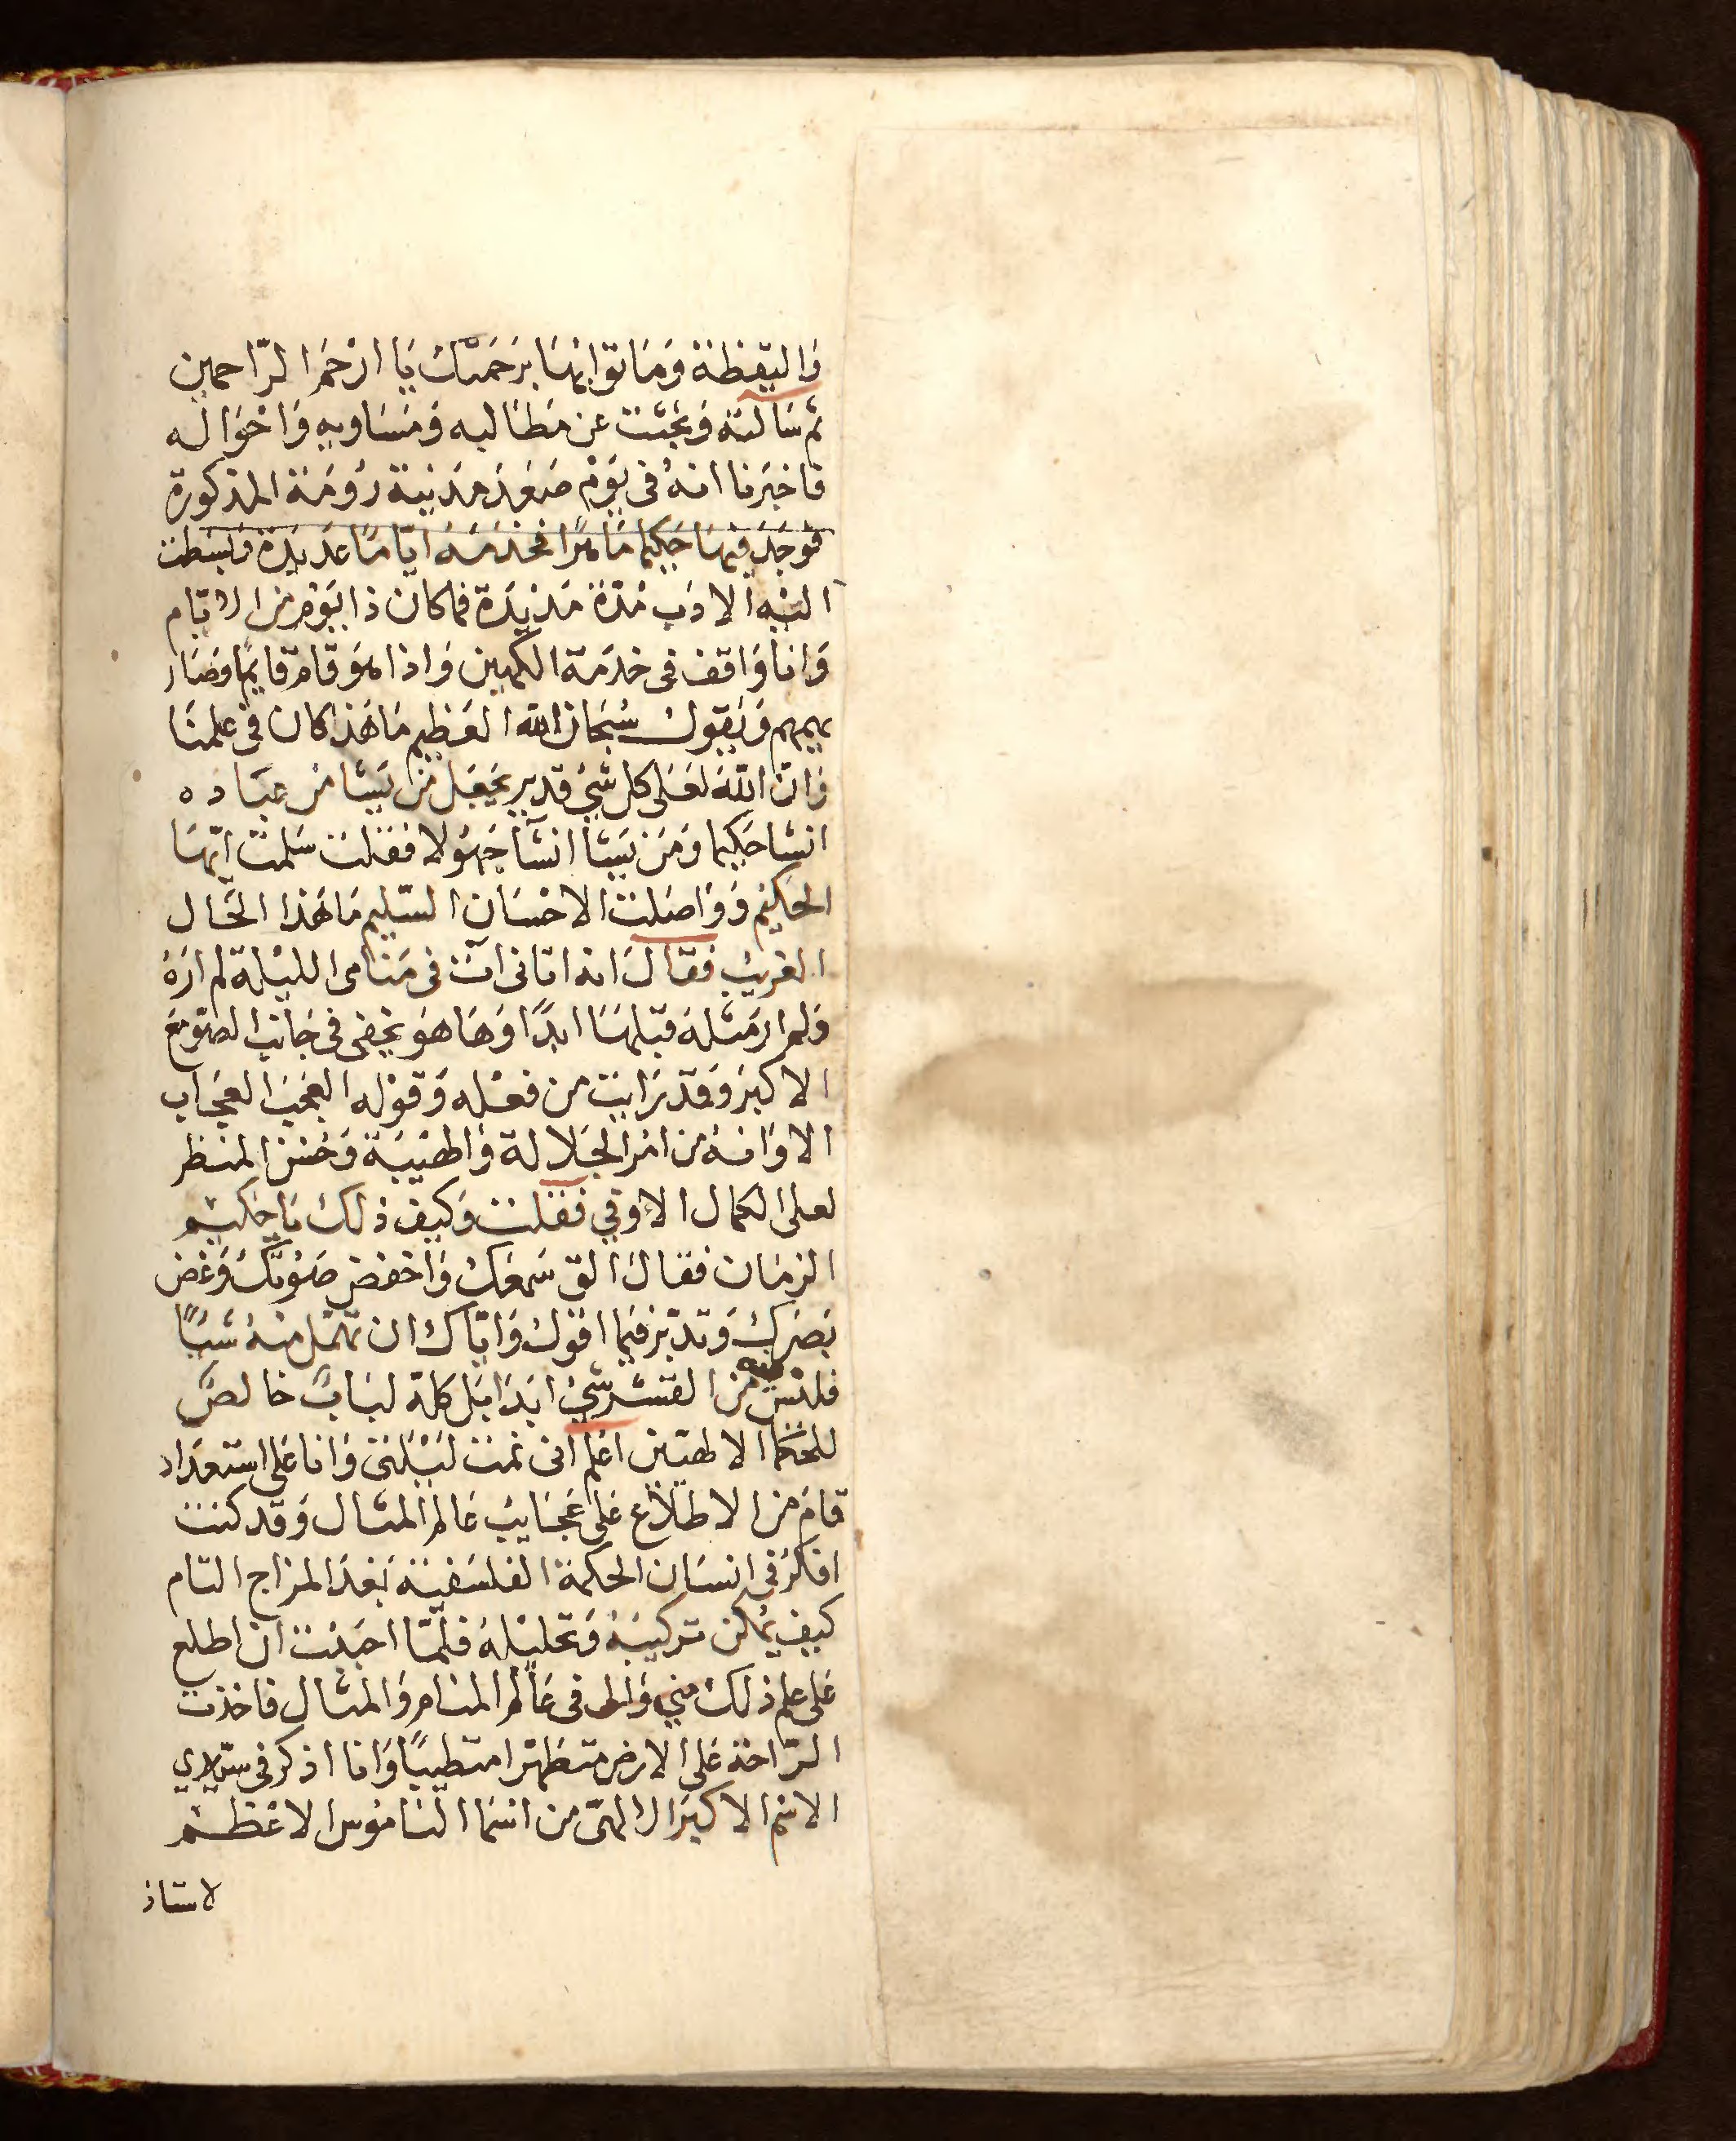 وَاليَقظة وَمَا ثوابهَا برَحمَتك يَا ارْحَمَ الرّاحمين
ثم سَالته وَبحَثت عن مَطَالبه وَمسَاويه وَاحْوَاله
فاخبَرنا انهُ فى يَوْم صَعَدَ مَدَينة رُومَة المذكورة
فوجَدَ فيهَا حَكيما مَاهرًا فخدَمَه ايّامًا عَديدَة وَبسَطت
اليْه الادَب مُدّة مَديدَة فلما كان ذا يَوْم من الايّام
وَانا وَاقف فى خدمَة الكهين وَاذا هوَ قامَ قايمًا وَصَار
يهمهم وَيَقول سُبحَان الله العَظيم مَا هَذا كان فى علمنَا
وَانّ اللهَ لعَلى كل شئ قدير يجعَل مَن يَشا من عبَاده
انسًا حَكيما وَمَن يَشَا انسًا جَهوُلا فقلت سَلمتَ ايّهَا
الحَكيم وَوَاصَلت الاحْسَان السّليم مَا هَذا الحَال
الغريب فقالَ انه اتانى آت فى مَنامى الليْلة لم ارَهُ
وَلم ارَ مثْلهَ قبْلهَا ابَدًا وَهَا هوَ يخفى فى جَانب الصّومَع
الاكبَر وَقدْ رَايت من فعْله وَقوْله العَجَب العجَاب
الا وَانهُ من امْر الجَلالة وَالهَيْبَة وَحُسْن المنظر
لعلى الكمال الاوفي فقلت وَكيفَ ذلك يَا حَكيْم
الزمَان فقال القِ سَمعَك وَاخفض صَوْتكَ وَغض
بَصَرك وَتدَبّر فيمَا اقوْل وَايّاك ان تهمْل منهُ شيًا
فلَيْسَ فيه من القشر شئ ابَدَا بَل كلهُ لبَابٌ خَالصٌ
للحكمَا الالهيين اعلم انى نمت ليْلتى وَانا عَلى استعدَاد
تامٍ من الاطلاع عَلى عَجَايب عَالم المثال وَقد كنت
افكرُ فى انسَان الحكمة الفلسَفية بَعْدَ المزاج التام
كيفَ يمُكن تركيبَهُ وَتحَليْلهُ فلمّا احبَبْت ان اطلع
عَلى علم ذلك منى وَالى فى عَالم المنام وَالمثال فاخذت
الرّاحَة عَلى الارض متطَهرا متطيبًا وَانا اذكر فى سرّى
الاسْم الاكبَر الالهىّ من اسْمَا النامُوس الاعْظَم
لاستاذ